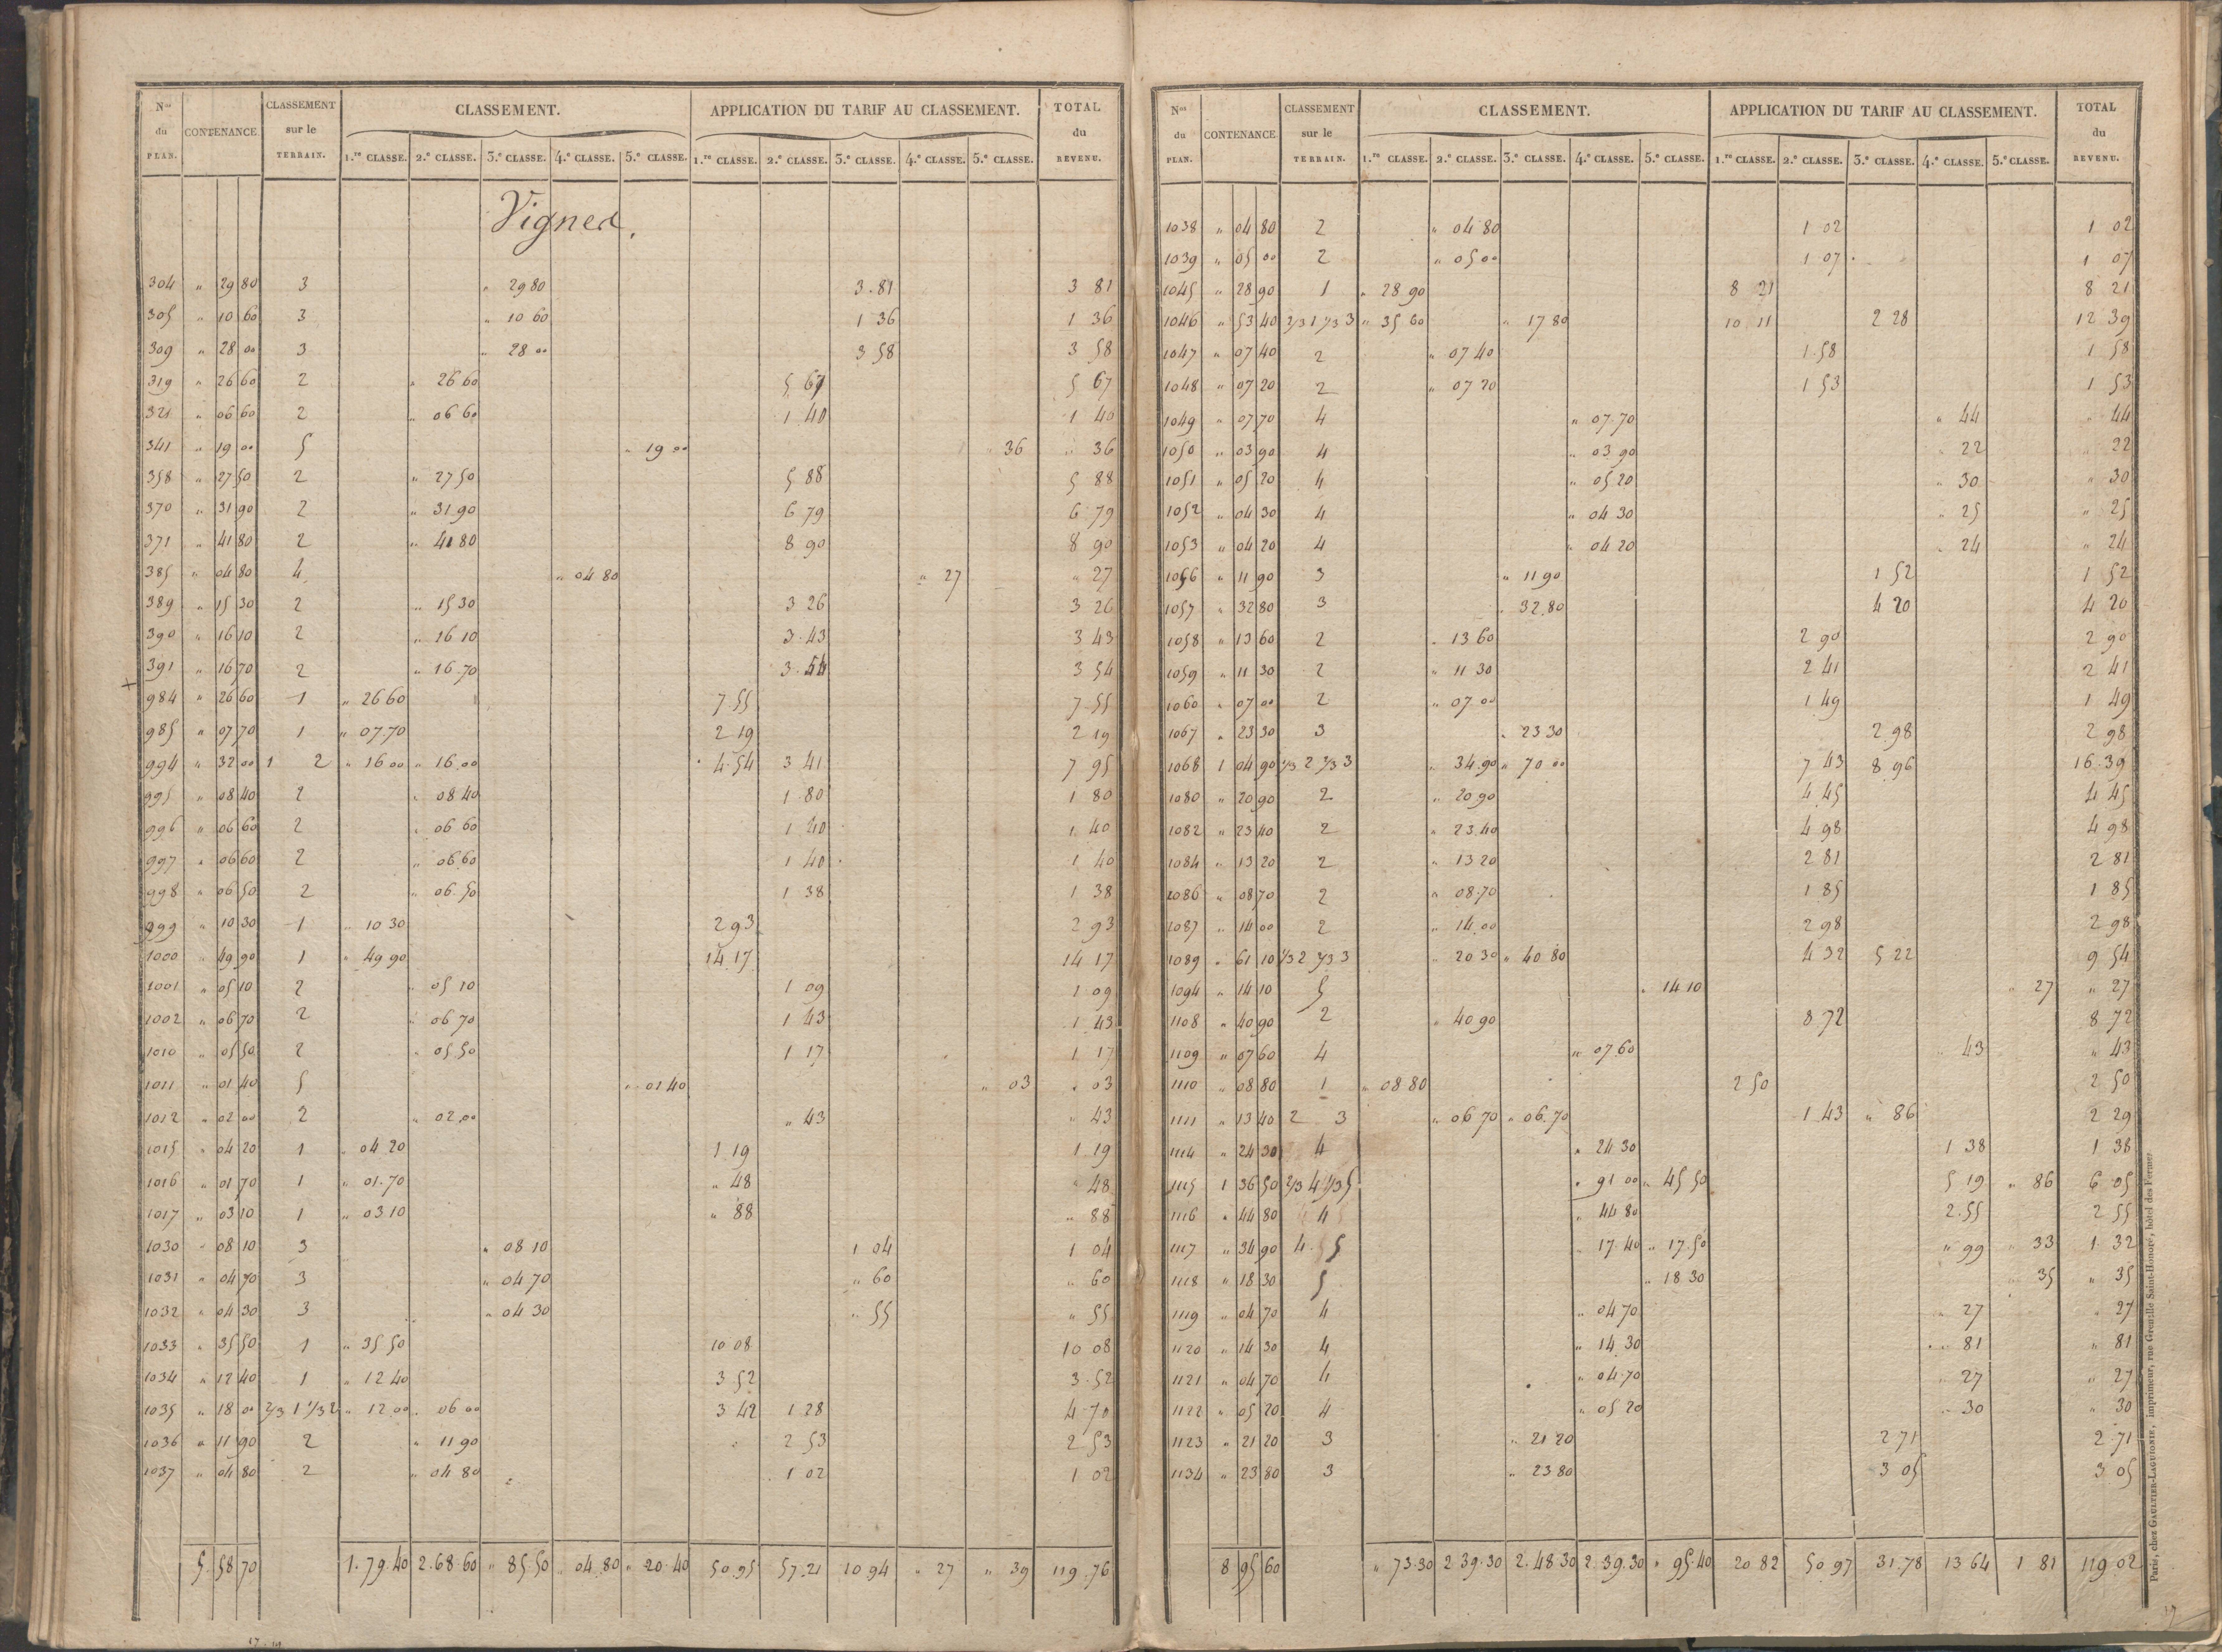 Nos du PLAN. CONTENANCE CLASSEMENT sur le TERRAIN. CLASSEMENT. APPLICATION DU TARIF AU CLASSEMENT. TOTAL du REVENU.
1.re CLASSE. 2.e CLASSE. 3.e CLASSE. 4.e CLASSE. 5.e CLASSE. 1.re CLASSE. 2.e CLASSE. 3.e CLASSE. 4.e CLASSE. 5.e CLASSE.
Vignes.
304 " 29 80 3 " 29 80 3.81 3 81
305 " 10 60 3 " 10 60 1 36 1 36
309 " 28 00 3 " 28 00 3 58 3 58
319 " 26 60 2 " 26 60 5 67 5 67
321 " 06 60 2 " 06 60 1 40 1 40
341 " 19 00 5 " 19 00 " 36 " 36
358 " 27 50 2 " 27 50 5 88 5 88
370 " 31 90 2 " 31 90 6 79 6 79
371 " 41 80 2 " 41 80 8 90 8 90
385 " 04 80 4 " 04 80 " 27 " 27
389 " 15 30 2 " 15 30 3 26 3 26
390 " 16 10 2 " 16 10 3.43 3 43
391 " 16 70 2 " 16.70 3.54 3 54
984 " 26 60 1 " 26 60 7.55 7.55
985 " 07 70 1 " 07.70 2 19 2 19
994 " 32 00 1 2 " 16 00 " 16.00 4.54 3 41 7 95
995 " 08 40 2 " 08 40 1 80 1 80
996 " 06 60 2 " 06 60 1 40 1. 40
997 " 06 60 2 " 06.60 1 40 1 40
998 " 06 50 2 " 06.50 1 38 1 38
999 " 10 30 1 " 10 30 2 93 2 93
1000 " 49 90 1 " 49 90 14.17 14 17
1001 " 05 10 2 " 05 10 1 09 1 09
1002 " 06 70 2 " 06 70 1 43 1 43
1010 " 05 50 2 " 05.50 1 17 1 17
1011 " 01 40 5 " 01 40 " 03 " 03
1012 " 02 00 2 " 02.00 " 43 " 43
1015 " 04 20 1 " 04 20 1 19 1 19
1016 " 01 70 1 " 01.70 " 48 " 48
1017 " 03 10 1 " 03 10 " 88 " 88
1030 " 08 10 3 " 08 10 1 04 1 04
1031 " 04 70 3 " 04 70 " 60 " 60
1032 " 04 30 3 " 04 30 " 55 " 55
1033 " 35 50 1 " 35 50 10 08 10 08
1034 " 12 40 1 " 12 40 3 52 3.52
1035 " 18 00 2/3 1 1/3 2 " 12.00 " 06 00 3 42 1 28 4 70
1036 " 11 90 2 " 11 90 2 53 2 53
1037 " 04 80 2 " 04 80 1 02 1 02
5. 58 70 1.79.40 2.68.60 " 85.50 " 04.80 " 20.40 50.95 57.21 10.94 " 27 " 39 119.76
Nos du PLAN. CONTENANCE CLASSEMENT sur le TERRAIN. CLASSEMENT. APPLICATION DU TARIF AU CLASSEMENT. TOTAL du REVENU.
1.re CLASSE. 2.e CLASSE. 3.e CLASSE. 4.e CLASSE. 5.e CLASSE. 1.re CLASSE. 2.e CLASSE. 3.e CLASSE. 4.e CLASSE. 5.e CLASSE.
1038 " 04 80 2 " 04 80 1 02 1 02
1039 " 05 00 2 " 05 00 1 07 1 07
1045 " 28 90 1 " 28 90 8 21 8 21
1046 " 53 40 2/3 1 1/3 3 " 35 60 " 17 80 10.11 2 28 12 39
1047 " 07 40 2 " 07 40 1.58 1 58
1048 " 07 20 2 " 07 20 1 53 1 53
1049 " 07 70 4 " 07.70 " 44 " 44
1050 " 03 90 4 " 03.90 " 22 " 22
1051 " 05 20 4 " 05 20 " 30 " 30
1052 " 04 30 4 " 04 30 " 25 " 25
1053 " 04 20 4 " 04 20 " 24 " 24
1056 " 11 90 3 " 11 90 1 52 1 52
1057 " 32 80 3 " 32.80 4 20 4 20
1058 " 13 60 2 " 13 60 2 90 2 90
1059 " 11 30 2 " 11 30 2 41 2 41
1060 " 07 00 2 " 07 00 1 49 1 49
1067 " 23 30 3 " 23 30 2.98 2 98
1068 1 04 90 1/3 2 2/3 3 " 34.90 " 70 00 7 43 8.96 16.39
1080 " 20 90 2 " 20 90 4.45 4 45
1082 " 23 40 2 " 23.40 4 98 4 98
1084 " 13 20 2 " 13 20 2 81 2 81
1086 " 08 70 2 " 08.70 1 85 1 85
1087 " 14 00 2 " 14.00 2 98 2 98
1089 " 61 10 1/3 2 2/3 3 " 20 30 " 40 80 4 32 5 22 9 54
1094 " 14 10 5 " 14 10 " 27 " 27
1108 " 40 90 2 " 40 90 8 72 8 72
1109 " 07 60 4 " 07.60 " 43 " 43
1110 " 08 80 1 " 08 80 2 50 2 50
1111 " 13 40 2 3 " 06 70 " 06.70 1 43 " 86 2 29
1114 " 24 30 4 " 24 30 1 38 1 38
1115 1 36 50 2/3 4 1/3 5 " 91 00 " 45 50 5 19 " 86 6 05
1116 " 44 80 4 " 44 80 2.55 2 55
1117 " 34 90 4. 5 " 17.40 " 17.50 " 99 " 33 1 32
1118 " 18 30 5 " 18 30 " 35 " 35
1119 " 04 70 4 " 04 70 " 27 " 27
1120 " 14 30 4 " 14 30 " 81 " 81
1121 " 04 70 4 " 04.70 " 27 " 27
1122 " 05 20 4 " 05 20 " 30 " 30
1123 " 21 20 3 " 21 20 2 71 2.71
1134 " 23 80 3 " 23 80 3 05 3 05
8 95 60 " 73.30 2 39.30 2.48 30 2.39.30 " 95.40 20 82 50.97 31.78 13 64 1 81 119.02
Paris, chez GAULTIER-LAGUIONIE, imprimeur, rue Grenelle Saint-Honoré, hôtel des Fermes.